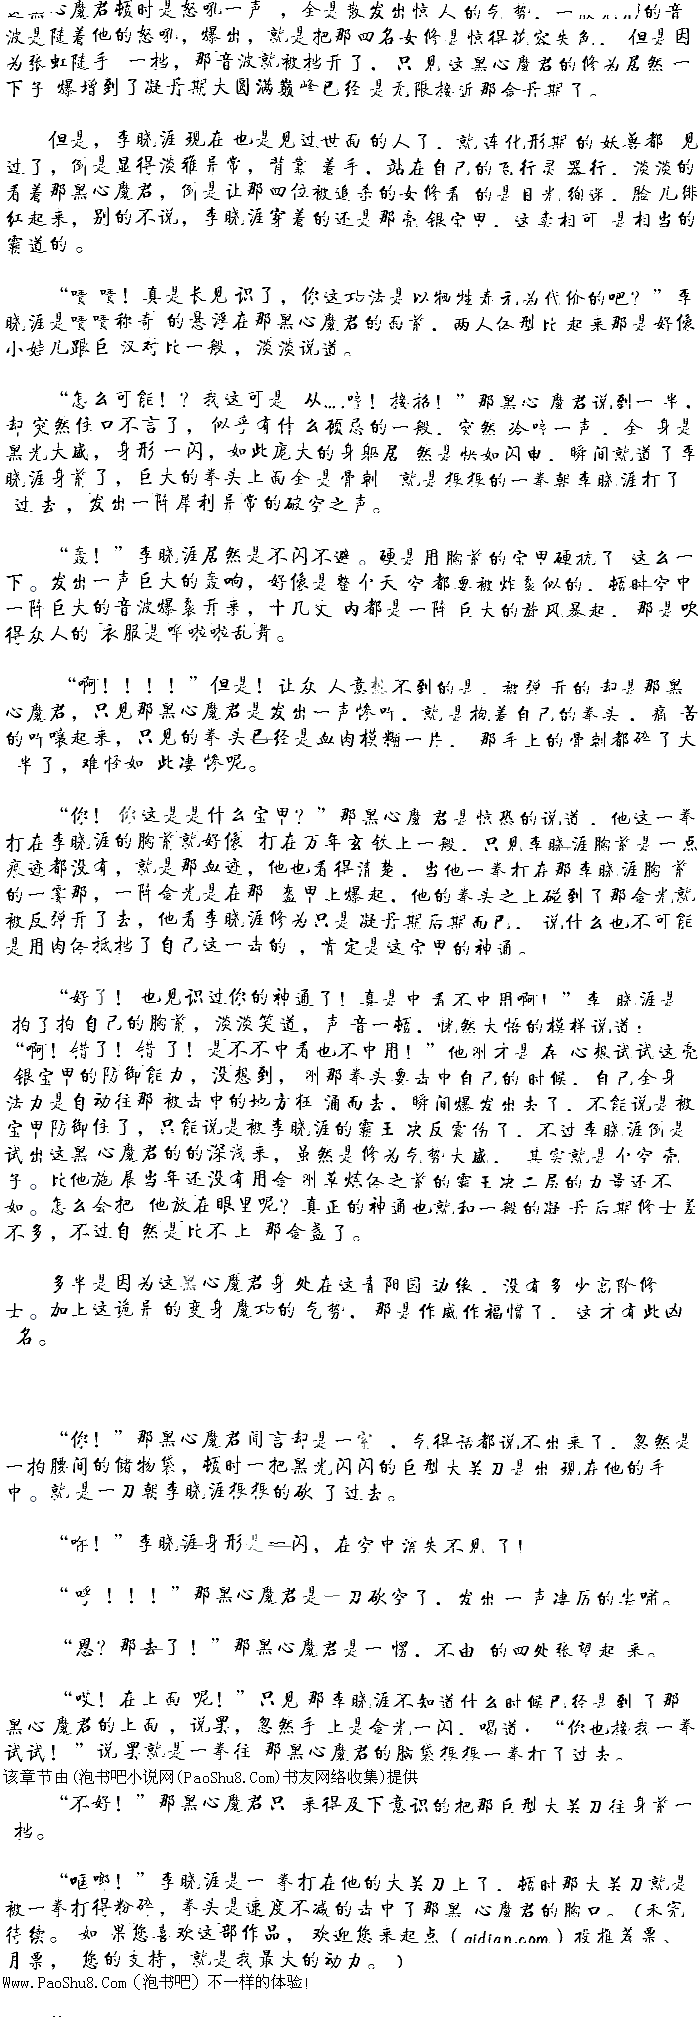 这黑心魔君顿时是怒吼一声，全是散发出惊人的气势．一股无形的音
波是随着他的怒吼，爆出，就是把那四名女修是惊得花容失色． 但是因
为张虹随手 一档，那音波就被档开了．只见这黑心魔君的修为居然一
下子 爆增到了凝丹期大圆满巅峰已经是无限接近那金丹期了。
但是，李晓涯现在也是见过世面的人了．就连化形期的妖兽都 见
过了，倒是显得淡雅异常，背靠 着手．站在自己的飞行灵器行．淡淡的
看着那黑心魔君，倒是让那四位被追杀的女修看 的是目光绚迷．脸儿绯
红起来，别的不说，李晓涯穿着的还是那亮银宝甲．这卖相可 是相当的
霸道的。
“啧 啧！真是长见识了，你这功法是以牺牲寿元为代价的吧？”李
晓涯是啧啧称奇 的悬浮在那黑心魔君的面前．两人体型比起来那是好像
小娃儿跟巨 汉对比一般，淡淡说道。
“怎么可能！？我这可是 从....哼！接招！”那黑心 魔君说到一半，
却突然住口不言了，似乎有什么顾忌的一般．突然 冷哼一声．全 身是
黑光大盛，身形一闪，如此庞大的身躯居 然是快如闪电．瞬间就道了李
晓涯身前了，巨大的拳头上面全是骨刺 就是狠狠的一拳朝李晓涯打了
过去，发出一阵犀利异常的破空之声。
“轰！”李晓涯居然是不闪不避。硬是用胸前的宝甲硬抗了 这么一
下。发出一声巨大的轰响，好像是整个天 空都要被炸裂似的．顿时空中
一阵巨大的音波爆裂开来，十几丈 内都是一阵 巨大的旋风暴起．那是吹
得众人的 衣服是哗啦啦乱舞。
“啊！！！！”但是！让众 人意想不到的是．被弹 开的 却是那黑
心魔君，只见那黑心魔君是发出一声惨叫．就是抱着自己的拳头．痛 苦
的叫嚷起来，只见的拳头已经是血肉模糊一片． 那手上的骨刺都碎了大
半了，难怪如 此凄惨呢。
“你！你这是是什么宝甲？”那黑心魔 君是惊恐的说道．他这一拳
打在李晓涯的胸前就好像 打在万年玄铁上一般．只见李晓涯胸前是一点
痕迹都没有，就是那血迹，他也看得清楚．当他一拳打在那李晓涯胸 前
的一霎那，一阵金光是在那 盔甲上爆起．他的拳头之上碰到了那金光就
被反弹开了去，他看李晓涯修为只是 凝丹期后期而已． 说什么也不可能
是用肉体抵挡了自己这一击的，肯定是这宝甲的神通。
“好了！ 也见识过你的神通了！真是中看不中用啊！”李 晓涯是
拍了拍 自己的胸前，淡淡笑道，声 音一顿．恍然大悟的模样说道：
“啊！错了！错 了！是不不中看也不中用！”他刚才是 存 心想试试这亮
银宝甲的防御能力，没想到， 刚那拳头要击中自己的 时候．自己全身
法力是自动往那 被击中的地方狂 涌而去．瞬间爆发出去了．不能说是被
宝甲防御住了，只能说是被李晓涯的霸王 决反震伤了．不过李晓涯倒是
试出这黑心魔君的的深浅来，虽然是修为气势大盛． 其实就是个空壳
子。比他施 展当年还没有用金 刚草炼体之前的霸王决二层的力量还不
如。怎么会把 他放在眼里呢？真正的神通也就和一般的凝丹后期修士差
不多，不过自 然是比不上 那金盏了。
多半是因为这黑心魔君身 处在这青阳国边缘．没有多少高阶修
士。加上这诡异 的变身魔功的气势．那是作威作福惯了．这才有此凶
名。
“你！”那黑心魔君闻言却是一窒 ，气得话都说不出来了．忽然是
一拍腰间的储物袋，顿时一把黑光闪闪的巨型大关刀是出 现在他的手
中。就是一刀朝李晓涯狠狠的砍了过去。
“咻！”李晓涯身形是一闪，在空中消失不见了！
“呼！！！”那黑心魔君是一刀砍空了．发出一声凄厉的尖啸。
“恩？那去了！”那黑心魔君是一愣．不由 的四处张望起 来。
“哎！在上面 呢！”只见 那李晓涯不知道什么时候已经是到 了那
黑心 魔君的上面，说罢，忽然手 上是金光一闪．喝道．“你也接我一拳
试试！”说罢就是一拳往 那黑心魔君的脑袋狠狠一拳打了过去。
该章节由(泡书吧小说网(PaoShu8.Com)书友网络收集)提供
“不好！”那黑心魔君只 来得及下意识的把那巨型大关刀往身前一
档。
“哐啷！”李晓涯是一 拳打在他的大关刀上了．顿时那大关刀就是
被一拳打得粉碎，拳头是速度不减的击中了那黑 心魔君的胸口。（未完
待续。如 果您喜欢这部作品，欢迎您来起点（qidian.com）投推荐票、
月票， 您的支持，就是我最大的动力。）
Www.PaoShu8.Com（泡书吧）不一样的体验！